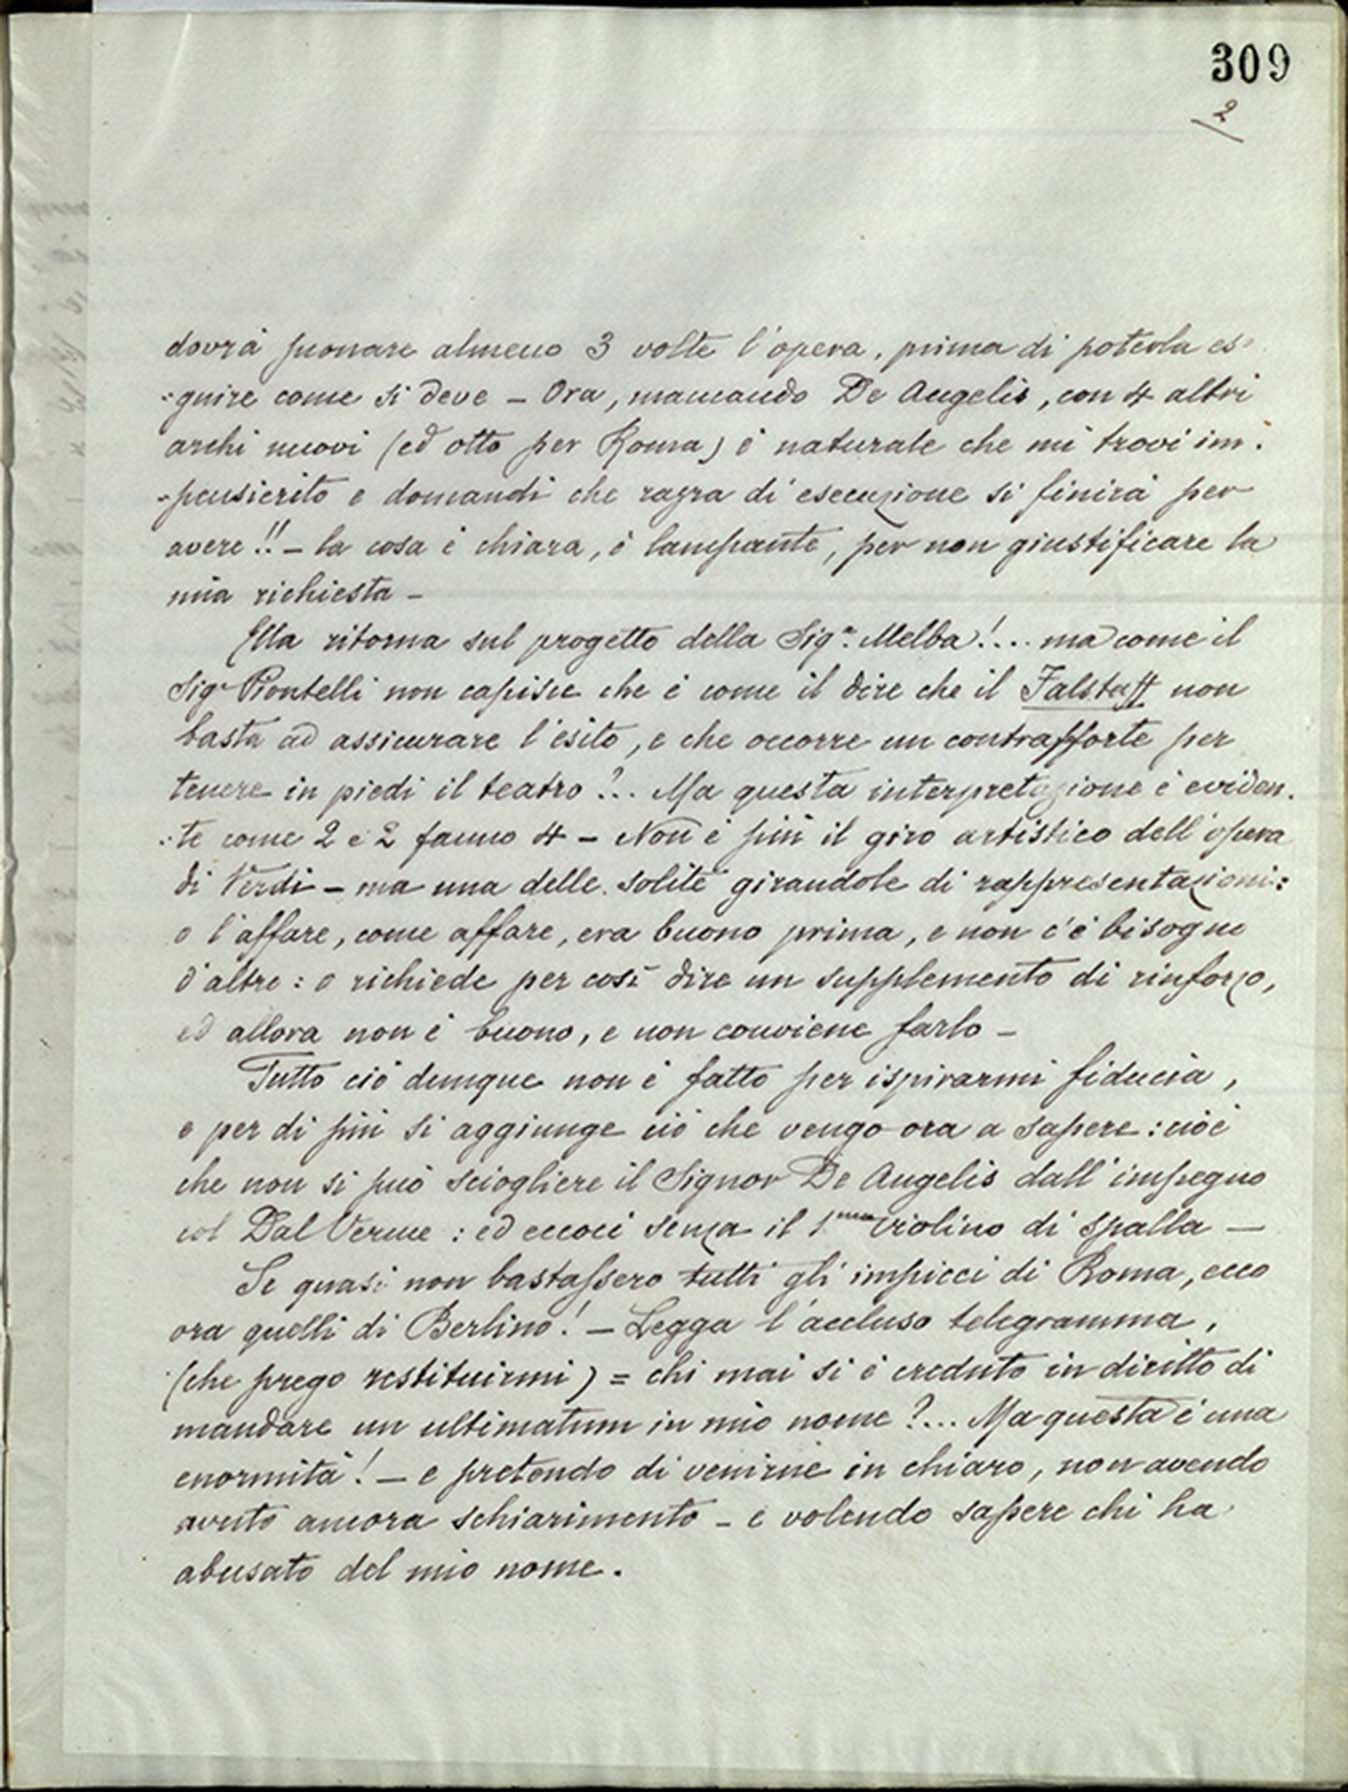 309
2
dovrà suonare almeno 3 volte l'opera, prima di poterla es=
=guire come si deve – Ora, mancando De Angelis, con 4 altri
archi nuovi (ed otto per Roma) è naturale che mi trovi im=
=pensierito e domandi che razza di esecuzione si finirà per
avere!! – la cosa è chiara, è lampante, per non giustificare la
mia richiesta –
Ella ritorna sul progetto della Sigª. Melba!... ma come il
Sigr Piontelli non capisce che è come il dire che il Falstaff non
basta ad assicurare l'esito, e che occorre un contrafforte per
tenere in piedi il teatro?.. Ma questa interpretazione è eviden=
=te come 2 e 2 fanno 4 – Non è più il giro artistico dell'opera
di Verdi – ma una delle solite girandole di rappresentazioni:
o l'affare, come affare, era buono prima, e non c'è bisogno
d'altro: o richiede per così dire un supplemento di rinforzo,
ed allora non è buono, e non conviene farlo –
Tutto ciò dunque non è fatto per ispirarmi fiducia,
e per di più si aggiunge ciò che vengo ora a sapere: cioè
che non si può sciogliere il Signor De Angelis dall'impegno
col Dal Verme: ed eccoci senza il 1mo violino di spalla –
Se quasi non bastassero tutti gli impicci di Roma, ecco
ora quelli di Berlino! – Legga l'accluso telegramma,
(che prego restituirmi) = chi mai si è creduto in diritto di
mandare un ultimatum in mio nome?... Ma questa è una
enormità! – e pretendo di venirne in chiaro, non avendo
avuto ancora schiarimento – e volendo sapere chi ha
abusato del mio nome.